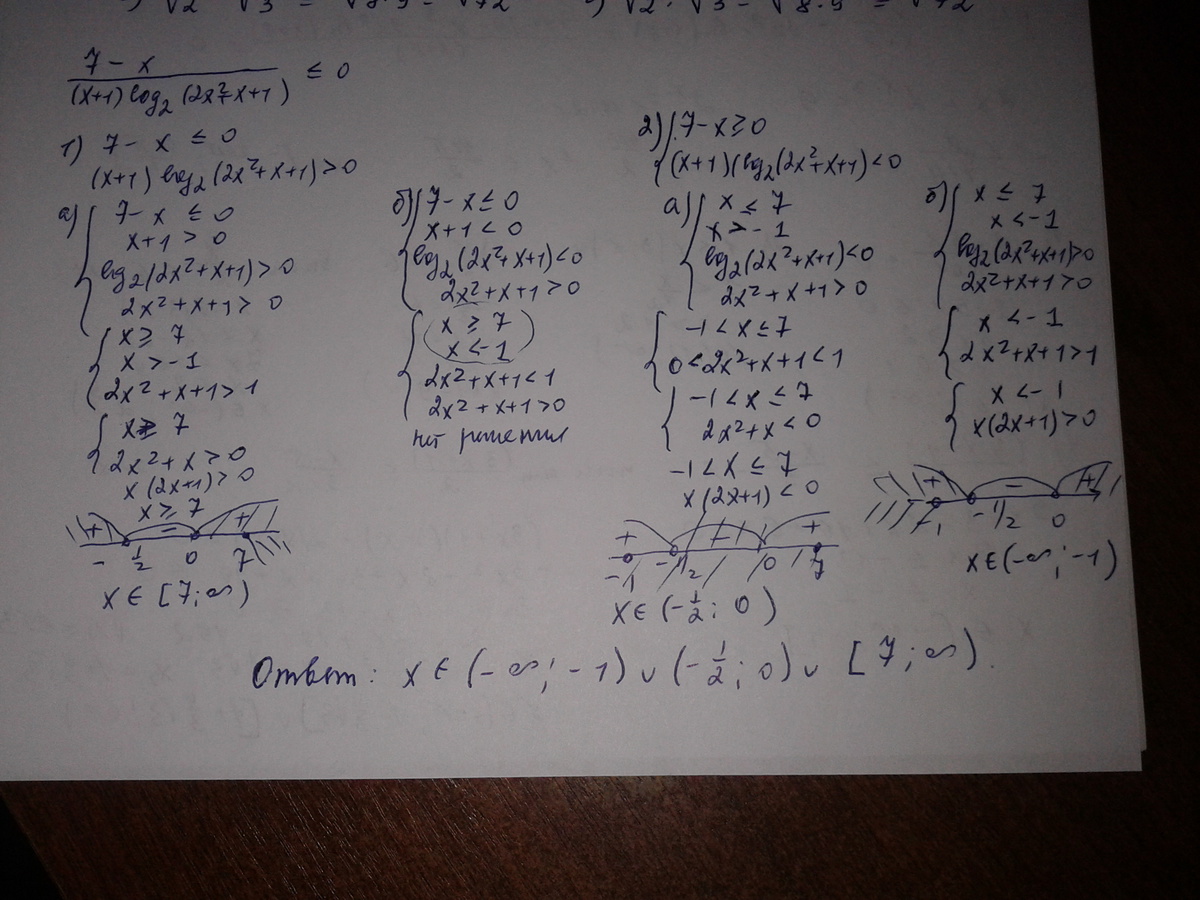 7 - x
(x+1) log₂ (2x²+x+1) ≤ 0
1) 7 - x ≤ 0
(x+1) log₂(2x²+x+1) > 0
а) 7 - x ≤ 0
x+1 > 0
log₂(2x²+x+1) > 0
2x²+x+1 > 0
x ≥ 7
x > -1
2x²+x+1 > 1
x ≥ 7
2x²+x > 0
x(2x+1) > 0
x ≥ 7
+ - +
-1/2 0 7
x ∈ [7; ∞)
б) 7 - x ≤ 0
x+1 < 0
log₂(2x²+x+1) < 0
2x²+x+1 > 0
x ≥ 7
x < -1
2x²+x+1 < 1
2x²+x+1 > 0
нет решения
2) 7 - x ≥ 0
(x+1)(log₂(2x²+x+1) < 0
а) x ≤ 7
x > -1
log₂(2x²+x+1) < 0
2x²+x+1 > 0
-1 < x ≤ 7
0 < 2x²+x+1 < 1
-1 < x ≤ 7
2x²+x < 0
-1 < x ≤ 7
x(2x+1) < 0
+ - +
-1 -1/2 0 7
x ∈ (-1/2; 0)
б) x ≤ 7
x < -1
log₂(2x²+x+1) > 0
2x²+x+1 > 0
x < -1
2x²+x+1 > 1
x < -1
x(2x+1) > 0
+ - +
-1 -1/2 0
x ∈ (-∞; -1)
Ответ: x ∈ (-∞; -1) ∪ (-1/2; 0) ∪ [7; ∞).